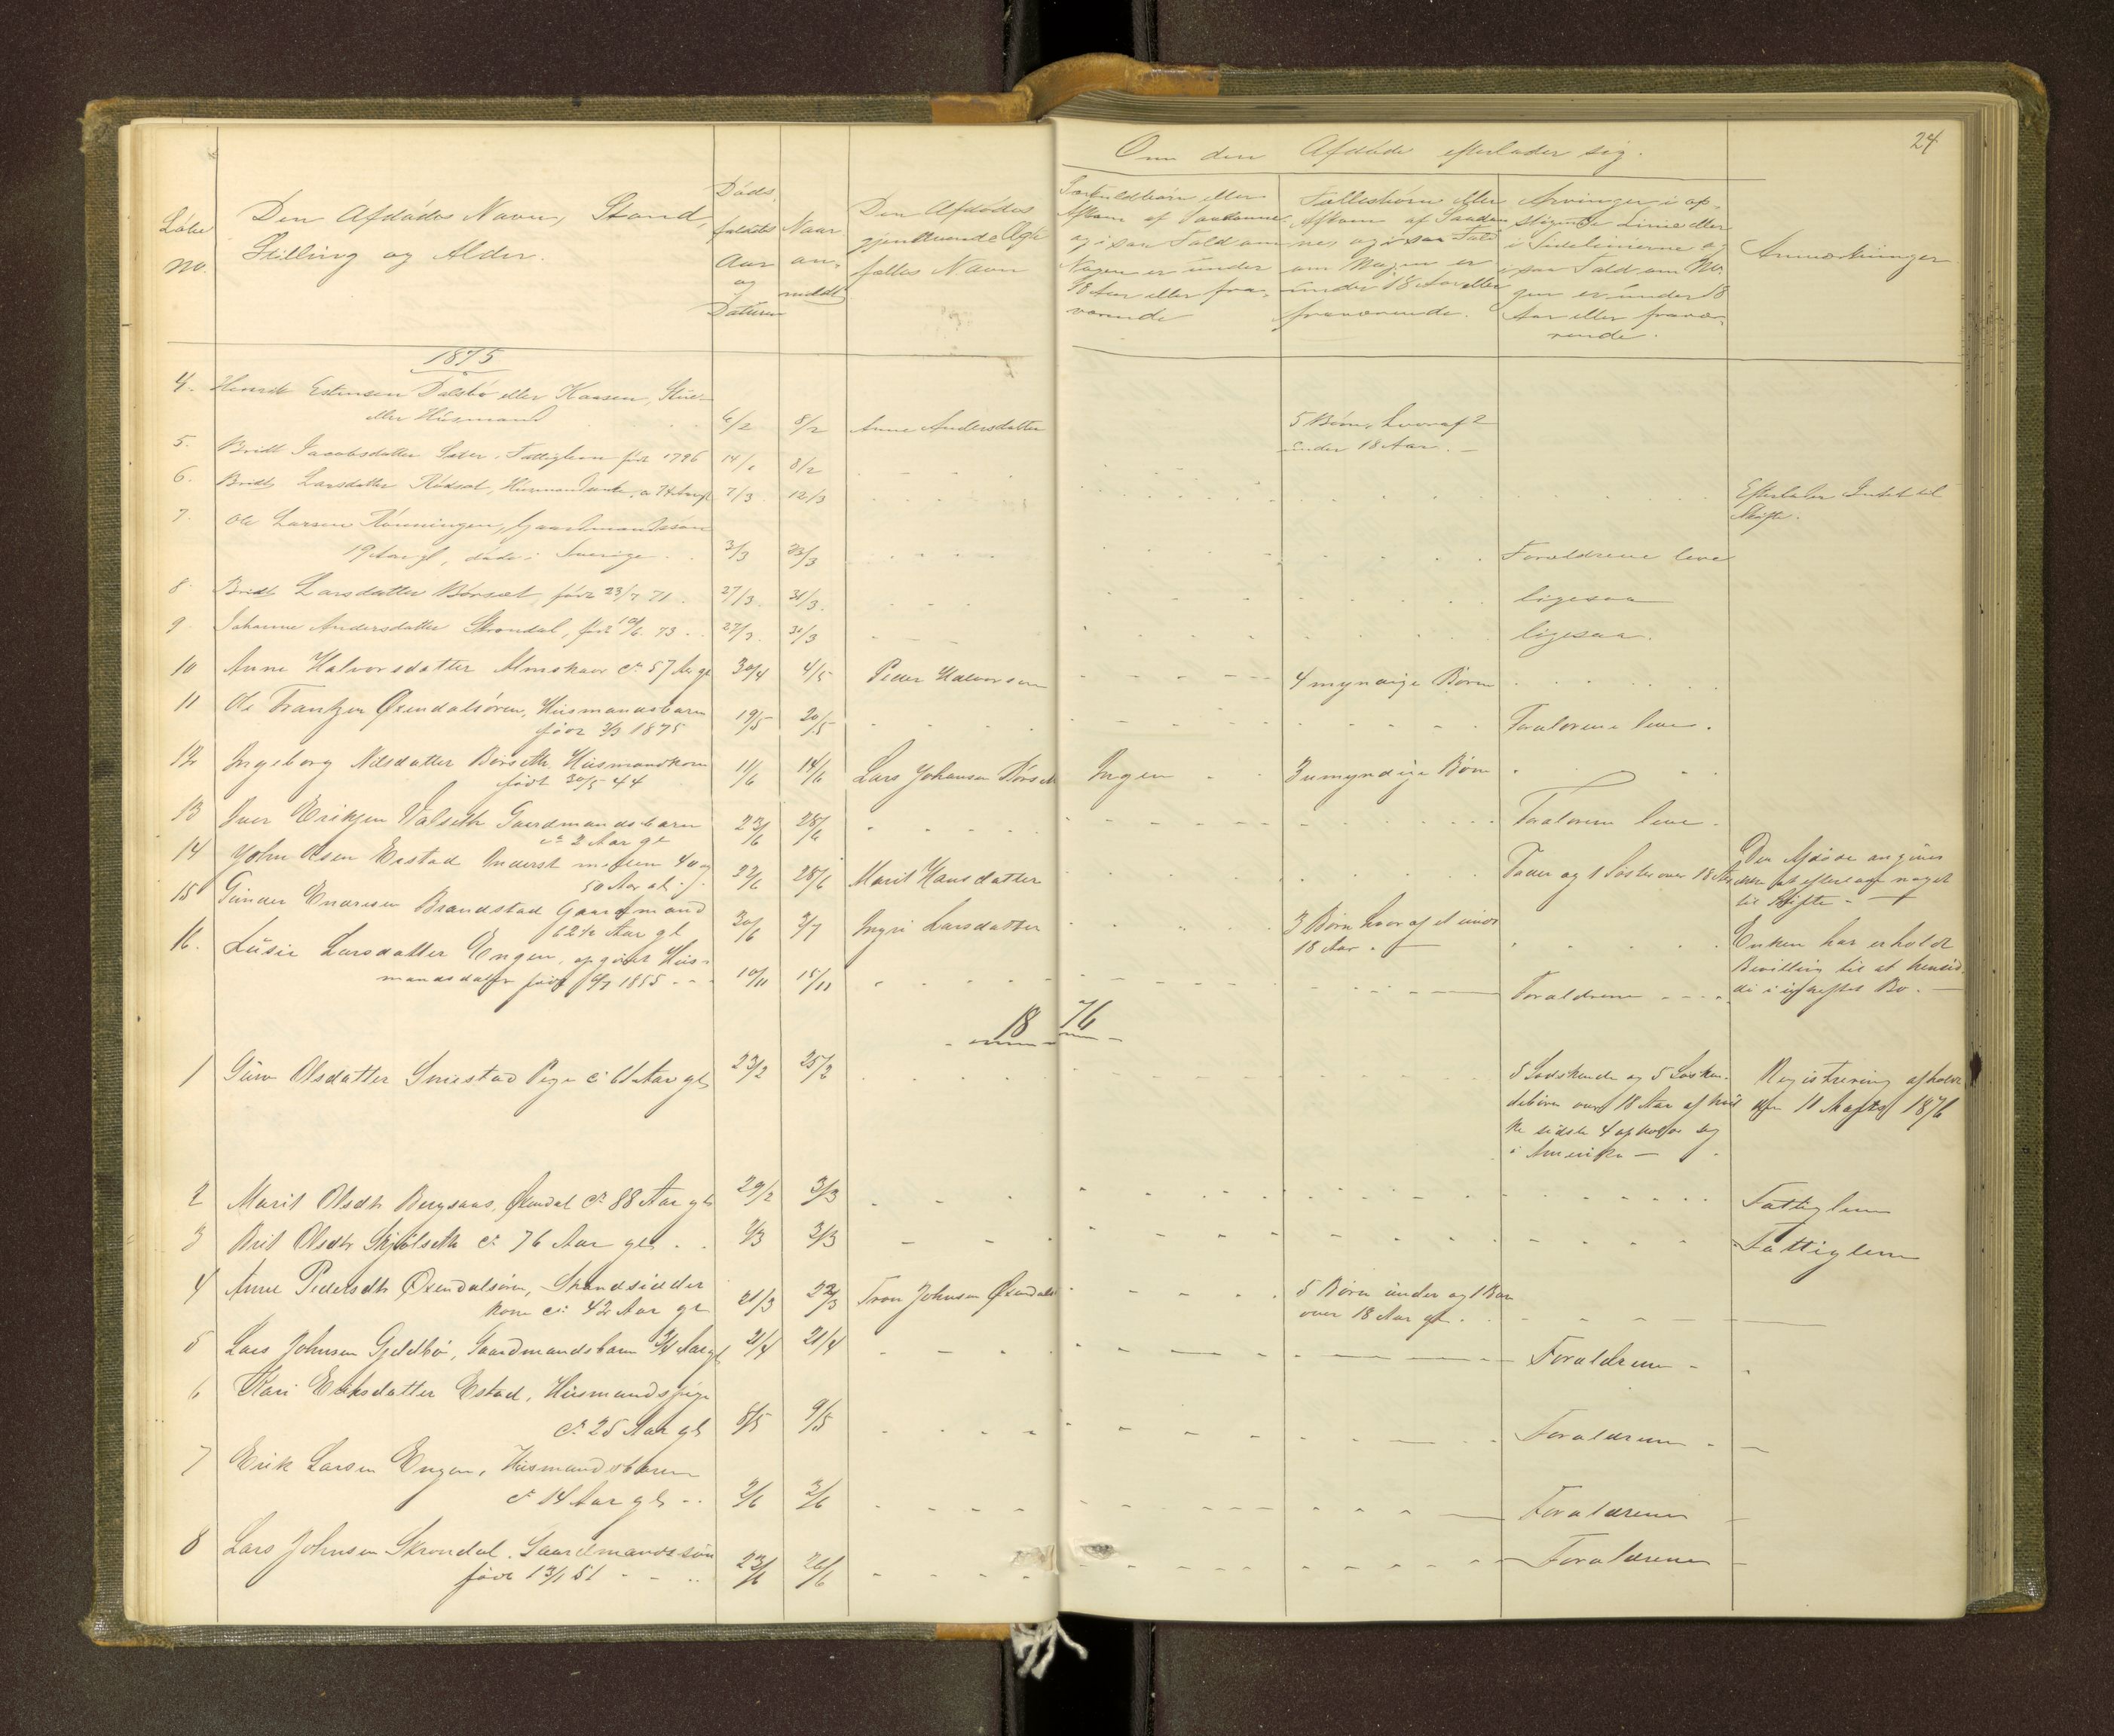 24
Om den Afdøde efterlader sig.
Løbe No.
Den Afdødes Navn, Stand, Stilling og Alder.
Døds faldets Aar og Datum
Naar anmeldt
Den Afdødes gjenlevende Ægtefælles Navn
Særkuldbørn eller Afkom af Saadanne og i saa Fald om Nogen er under 18 Aar eller fraværende
Fællesbørn eller Afkom af Saadannes og i saa Fald om Nogen er under 18 Aar eller fraværende.
Arvinger i opstigende Linie eller i Sidelinierne og i saa Fald om Nogen er under 18 Aar eller fraværende.
Anmærkninger
1875
4. Henrik Estensen Dalsbø eller Kaasen,
eller Husmand 6/2 8/2 Anne Andersdatter 5 Børn, hvoraf 2
under 18 Aar. -
5. Bridt Jacobsdatter Sæter, Fattiglem født 1796 14/1 8/2
6. Bridt Larsdatter Rødsæt, 7/3 12/3 Efterlader Intet til
Skifte.
7. Ole Larsen Rønningen, Gaardmandssøn
19 Aar gl, døde i Sverige 3/3 23/3 Forældrene leve
8. Bridt Larsdatter Børsæt, født 23/7 71. 27/3. 31/3. ligesaa
9. Johanne Andersdatter Skrondal, født 10/6 73 27/3. 30/3 ligesaa.
10 Anne Halvorsdatter Almskaar ca 57 Aar gl 30/4 4/5 Peder Halvorsen 4 myndige Børn
11 Ole Frantzen Øxendalsøren, Husmandsbarn
født 3/3 1875 19/5 20/5 Forældrene leve.
12 Ingeborg Nilsdatter Børseth Husmandkone
født 30/5 44 11/6 14/6 Lars Johansen Børseth Ingen 3 umyndige Børn
13 Iver Eriksen Valseth Gaardmandsbarn
ca 2 Aar gl 23/6 28/6 Forældrene leve.
14 John Olsen Erstad Inderst mellem 40 og
50 Aar gl. 22/6 28/6 Marit Hansdatter Fader og 1 Søster over 18 Aar Den Afdøde angives
ikke at efterlade noget
til Skifte -
15 Gunder Endresen Brandstad Gaardmand
62½ Aar gl 30/6 3/7 Ingri Larsdatter 3 Børn hvoraf et under
18 Aar. - Enken har erholdt
Bevilling til at hensidde
i uskiftet Bo. -
16. Lusie Larsdatter Engen, opgivet Husmandsdatter
født 1855 10/11 15/11 Forældrene
1876
1 Guro Olsdatter Smestad Pige ca 61 Aar gl 23/2 25/2 5 Sødskende og 5 Søskendebørn
over 18 Aar af hvilke
sidste 4 opholde sig
i Amerika - Registrering afholdt
den 11 Marts 1876
2 Marit Olsdtr Bergsaas, Øxendal ca 88 Aar gl 29/2 3/3 Fattiglem
3 Brit Olsdtr Skjølseth ca 76 Aar gl 2/3 3/3 Fattiglem
4 Anne Pedersdtr Øxendalsøren, Strandsidder
kone ca 42 Aar gl 21/3 22/3 Tron Johnsen Øxendals 5 Børn under og 1 Barn
over 18 Aar gl.
5 Lars Johnsen Gjeldbø, Gaardmandsbarn ¾ Aar gl 21/4 21/4 Forældrene
6 Kari Eriksdatter Estad, Husmandspige
ca 25 Aar gl 8/5 9/5 Forældrene
7 Erik Larsen Engen, Husmandsbarn
ca 14 Aar gl 2/6 3/6 Forældrene
8 Lars Johnsen Skrondal. Gaardmandssøn
født 13/1 51 23/6 26/6 Forældrene